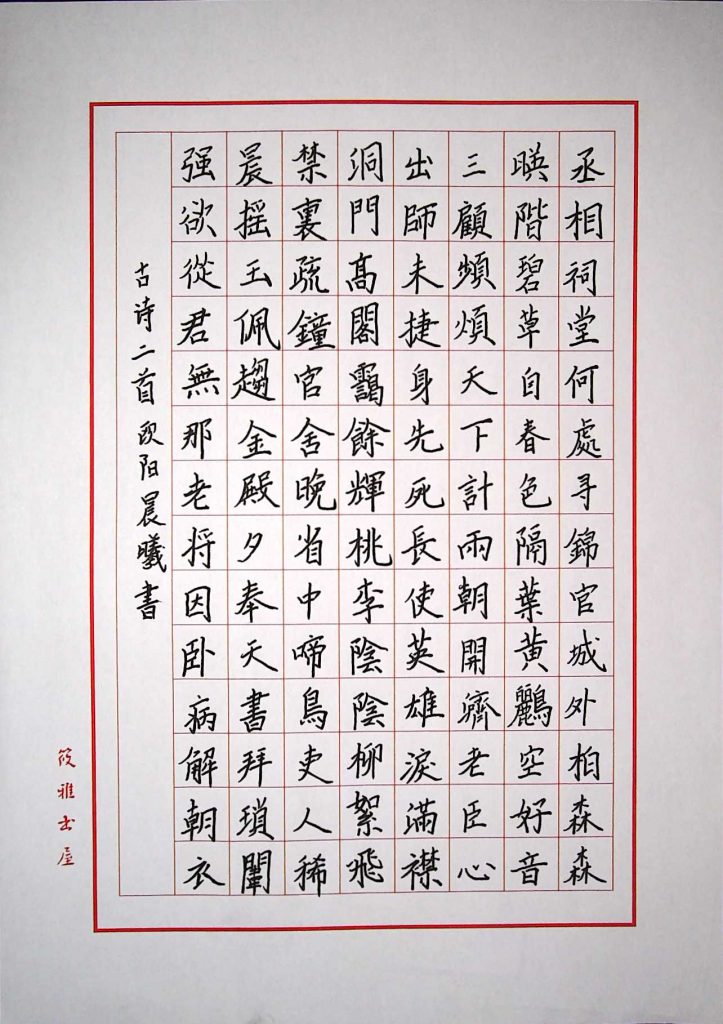 丞相祠堂何處寻錦官城外柏森森
暎階碧草自春色隔葉黄鸝空好音
三顧頻煩天下計兩朝開濟老臣心
出師未捷身先死長使英雄淚滿襟
洞門髙閣靄餘輝桃李陰陰柳絮飛
禁裏疏鐘官舍晚省中啼鳥吏人稀
晨摇玉佩趨金殿夕奉天書拜瑣闈
强欲從君無那老将因卧病解朝衣
古诗二首 欧阳晨曦書
筱雅书屋